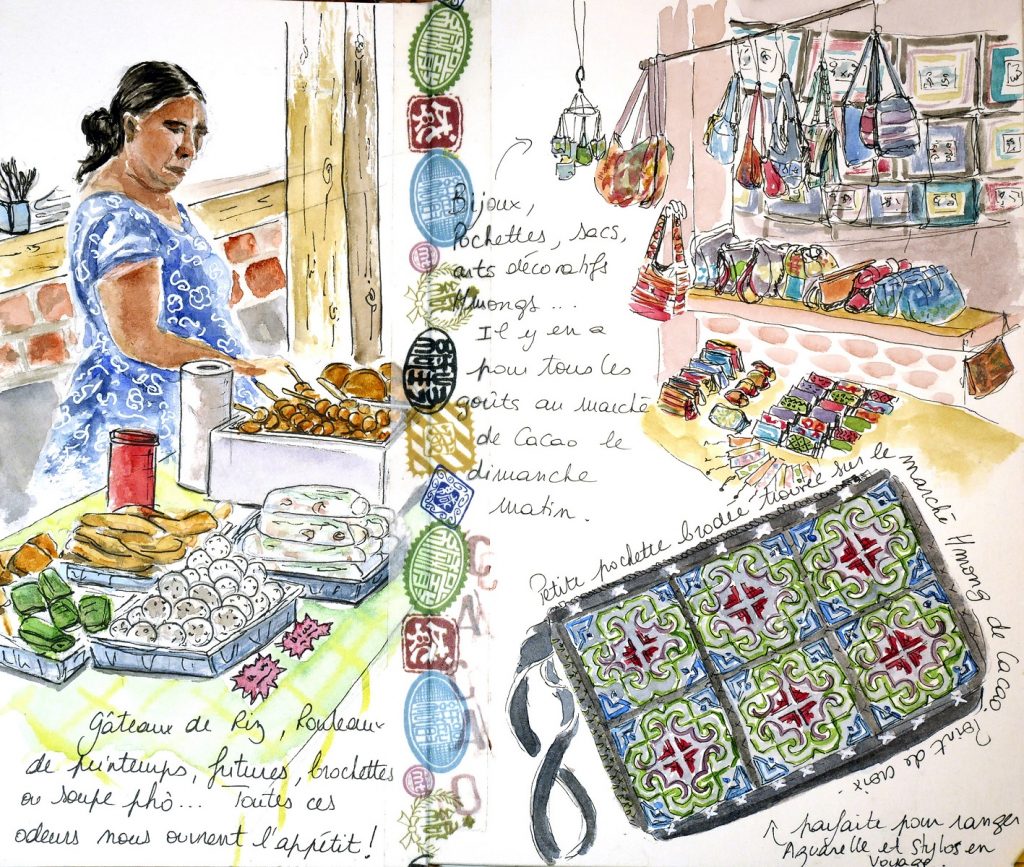 Bijoux,
Pochettes, sacs,
arts décoratifs
Hmongs...
Il y en a
pour tous les
goûts au marché
de Cacao le
dimanche
matin.
Petite pochette brodée trouvée sur le marché Hmong de Cacao. Point de croix.
↑ parfaite pour ranger
Aquarelle et Stylos en
voyage
Gâteaux de Riz, Rouleaux
de printemps, fritures, brochettes
ou soupe phô... Toutes ces
odeurs nous ouvrent l'appétit!
CACAO